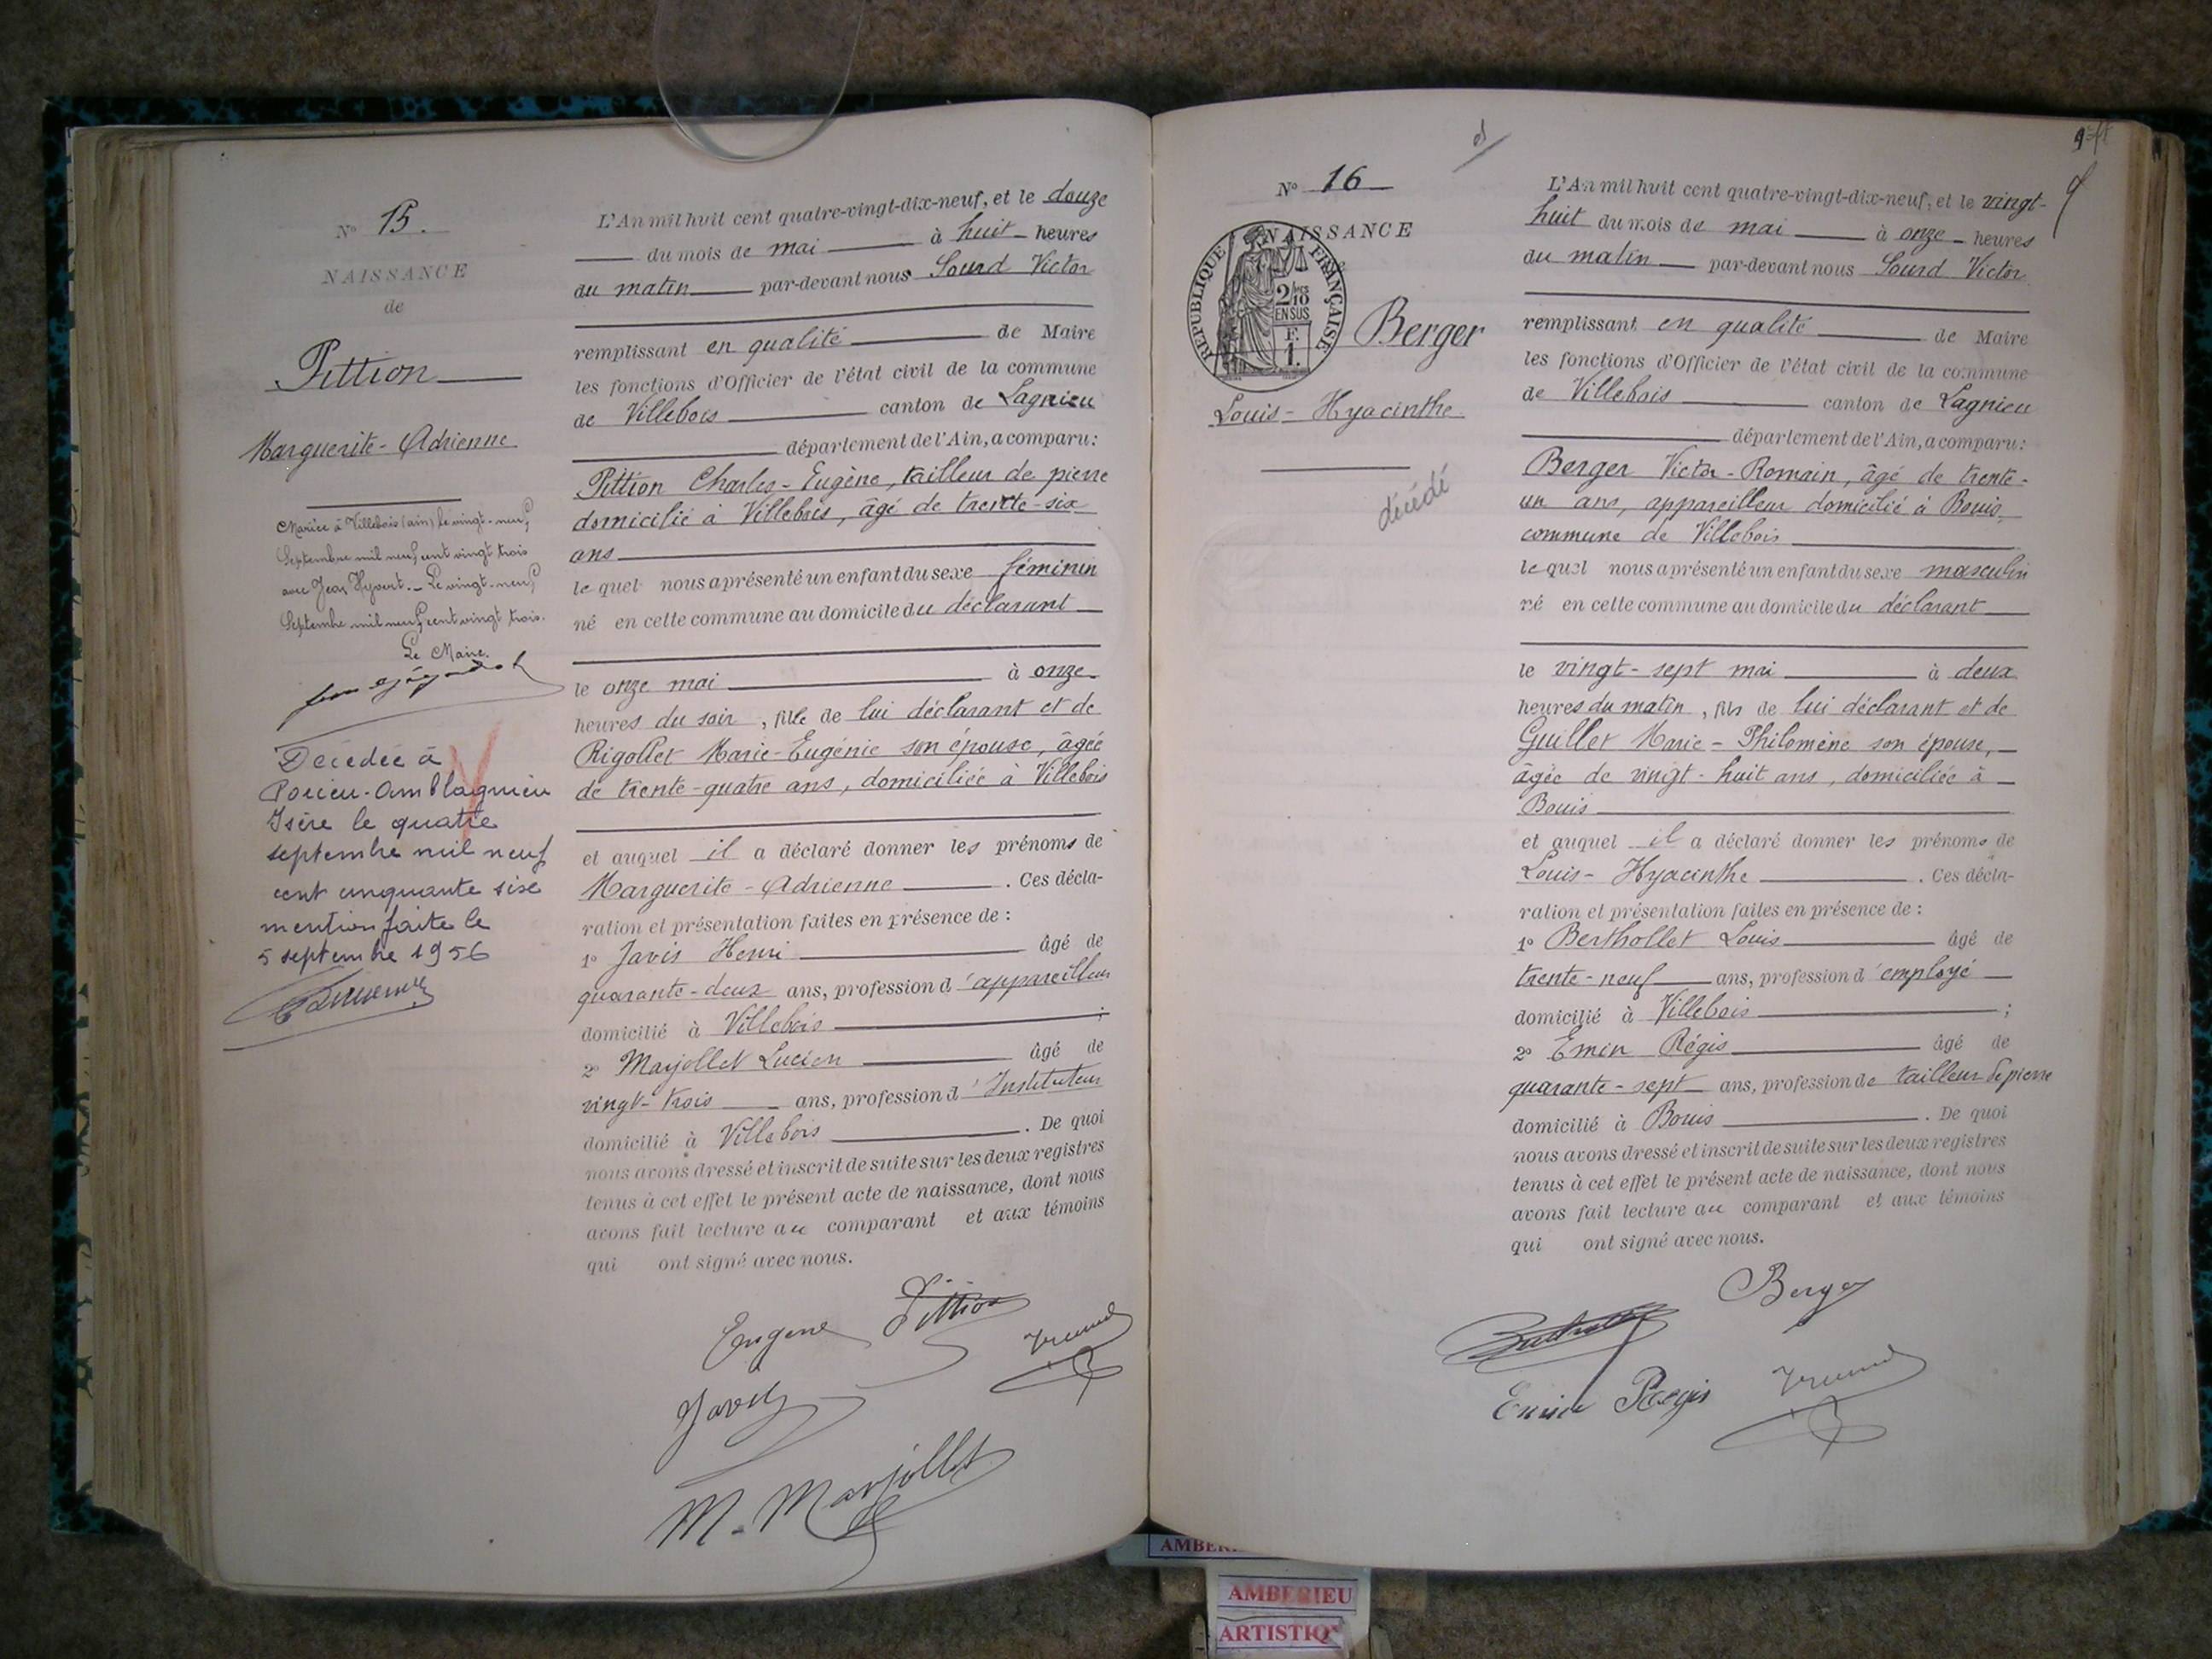 N° 15.
NAISSANCE
de
Pittion
Marguerite-Adrienne
Mariée à Villebois (ain) le vingt-neuf
Septembre mil neuf cent vingt trois
avec Jean Hyvert. - Le vingt-neuf
Septembre mil neuf cent vingt trois.
Le Maire.
Décédée à
Porcieu-Amblagnieu
Isère le quatre
septembre mil neuf
cent cinquante sixe
mention faite le
5 septembre 1956
L'An mil huit cent quatre-vingt-dix-neuf, et le douze
du mois de mai à huit heures
du matin par-devant nous Sourd Victor
remplissant en qualité de Maire
les fonctions d'Officier de l'état civil de la commune
de Villebois canton de Lagnieu
département de l'Ain, a comparu:
Pittion Charles-Eugène, tailleur de pierre
domicilié à Villebois, âgé de trente-six
ans
le quel nous a présenté un enfant du sexe féminin
né en cette commune au domicile du déclarant
le onze mai à onze
heures du soir, fille de lui déclarant et de
Rigollet Marie-Eugénie son épouse, âgée
de trente-quatre ans, domiciliée à Villebois
et auquel il a déclaré donner les prénoms de
Marguerite-Adrienne. Ces décla-
ration et présentation faites en présence de :
1° Javis Henri âgé de
quarante-deux ans, profession d'appareilleur
domicilié à Villebois ;
2° Marjollet Lucien âgé de
vingt-trois ans, profession d'Instituteur
domicilié à Villebois. De quoi
nous avons dressé et inscrit de suite sur les deux registres
tenus à cet effet le présent acte de naissance, dont nous
avons fait lecture au comparant et aux témoins
qui ont signé avec nous.
Eugène Pittion
M. Marjollet
N° 16
NAISSANCE
RÉPUBLIQUE FRANÇAISE
2/10
EN SUS
F.
1.
Berger
Louis-Hyacinthe
décédé
L'An mil huit cent quatre-vingt-dix-neuf, et le vingt-
huit du mois de mai à onze heures
du matin par-devant nous Sourd Victor
remplissant en qualité de Maire
les fonctions d'Officier de l'état civil de la commune
de Villebois canton de Lagnieu
département de l'Ain, a comparu:
Berger Victor-Romain, âgé de trente-
un ans, appareilleur domicilié à Bouis,
commune de Villebois
le quel nous a présenté un enfant du sexe masculin
né en cette commune au domicile du déclarant
le vingt-sept mai à deux
heures du matin, fils de lui déclarant et de
Guillet Marie-Philomène son épouse,
âgée de vingt-huit ans, domiciliée à
Bouis
et auquel il a déclaré donner les prénoms de
Louis-Hyacinthe. Ces décla-
ration et présentation faites en présence de :
1° Berthollet Louis âgé de
trente-neuf ans, profession d'employé
domicilié à Villebois ;
2° Emin Régis âgé de
quarante-sept ans, profession de tailleur de pierre
domicilié à Bouis. De quoi
nous avons dressé et inscrit de suite sur les deux registres
tenus à cet effet le présent acte de naissance, dont nous
avons fait lecture au comparant et aux témoins
qui ont signé avec nous.
Berger
Emin Régis
AMBERIEU
ARTISTIQ